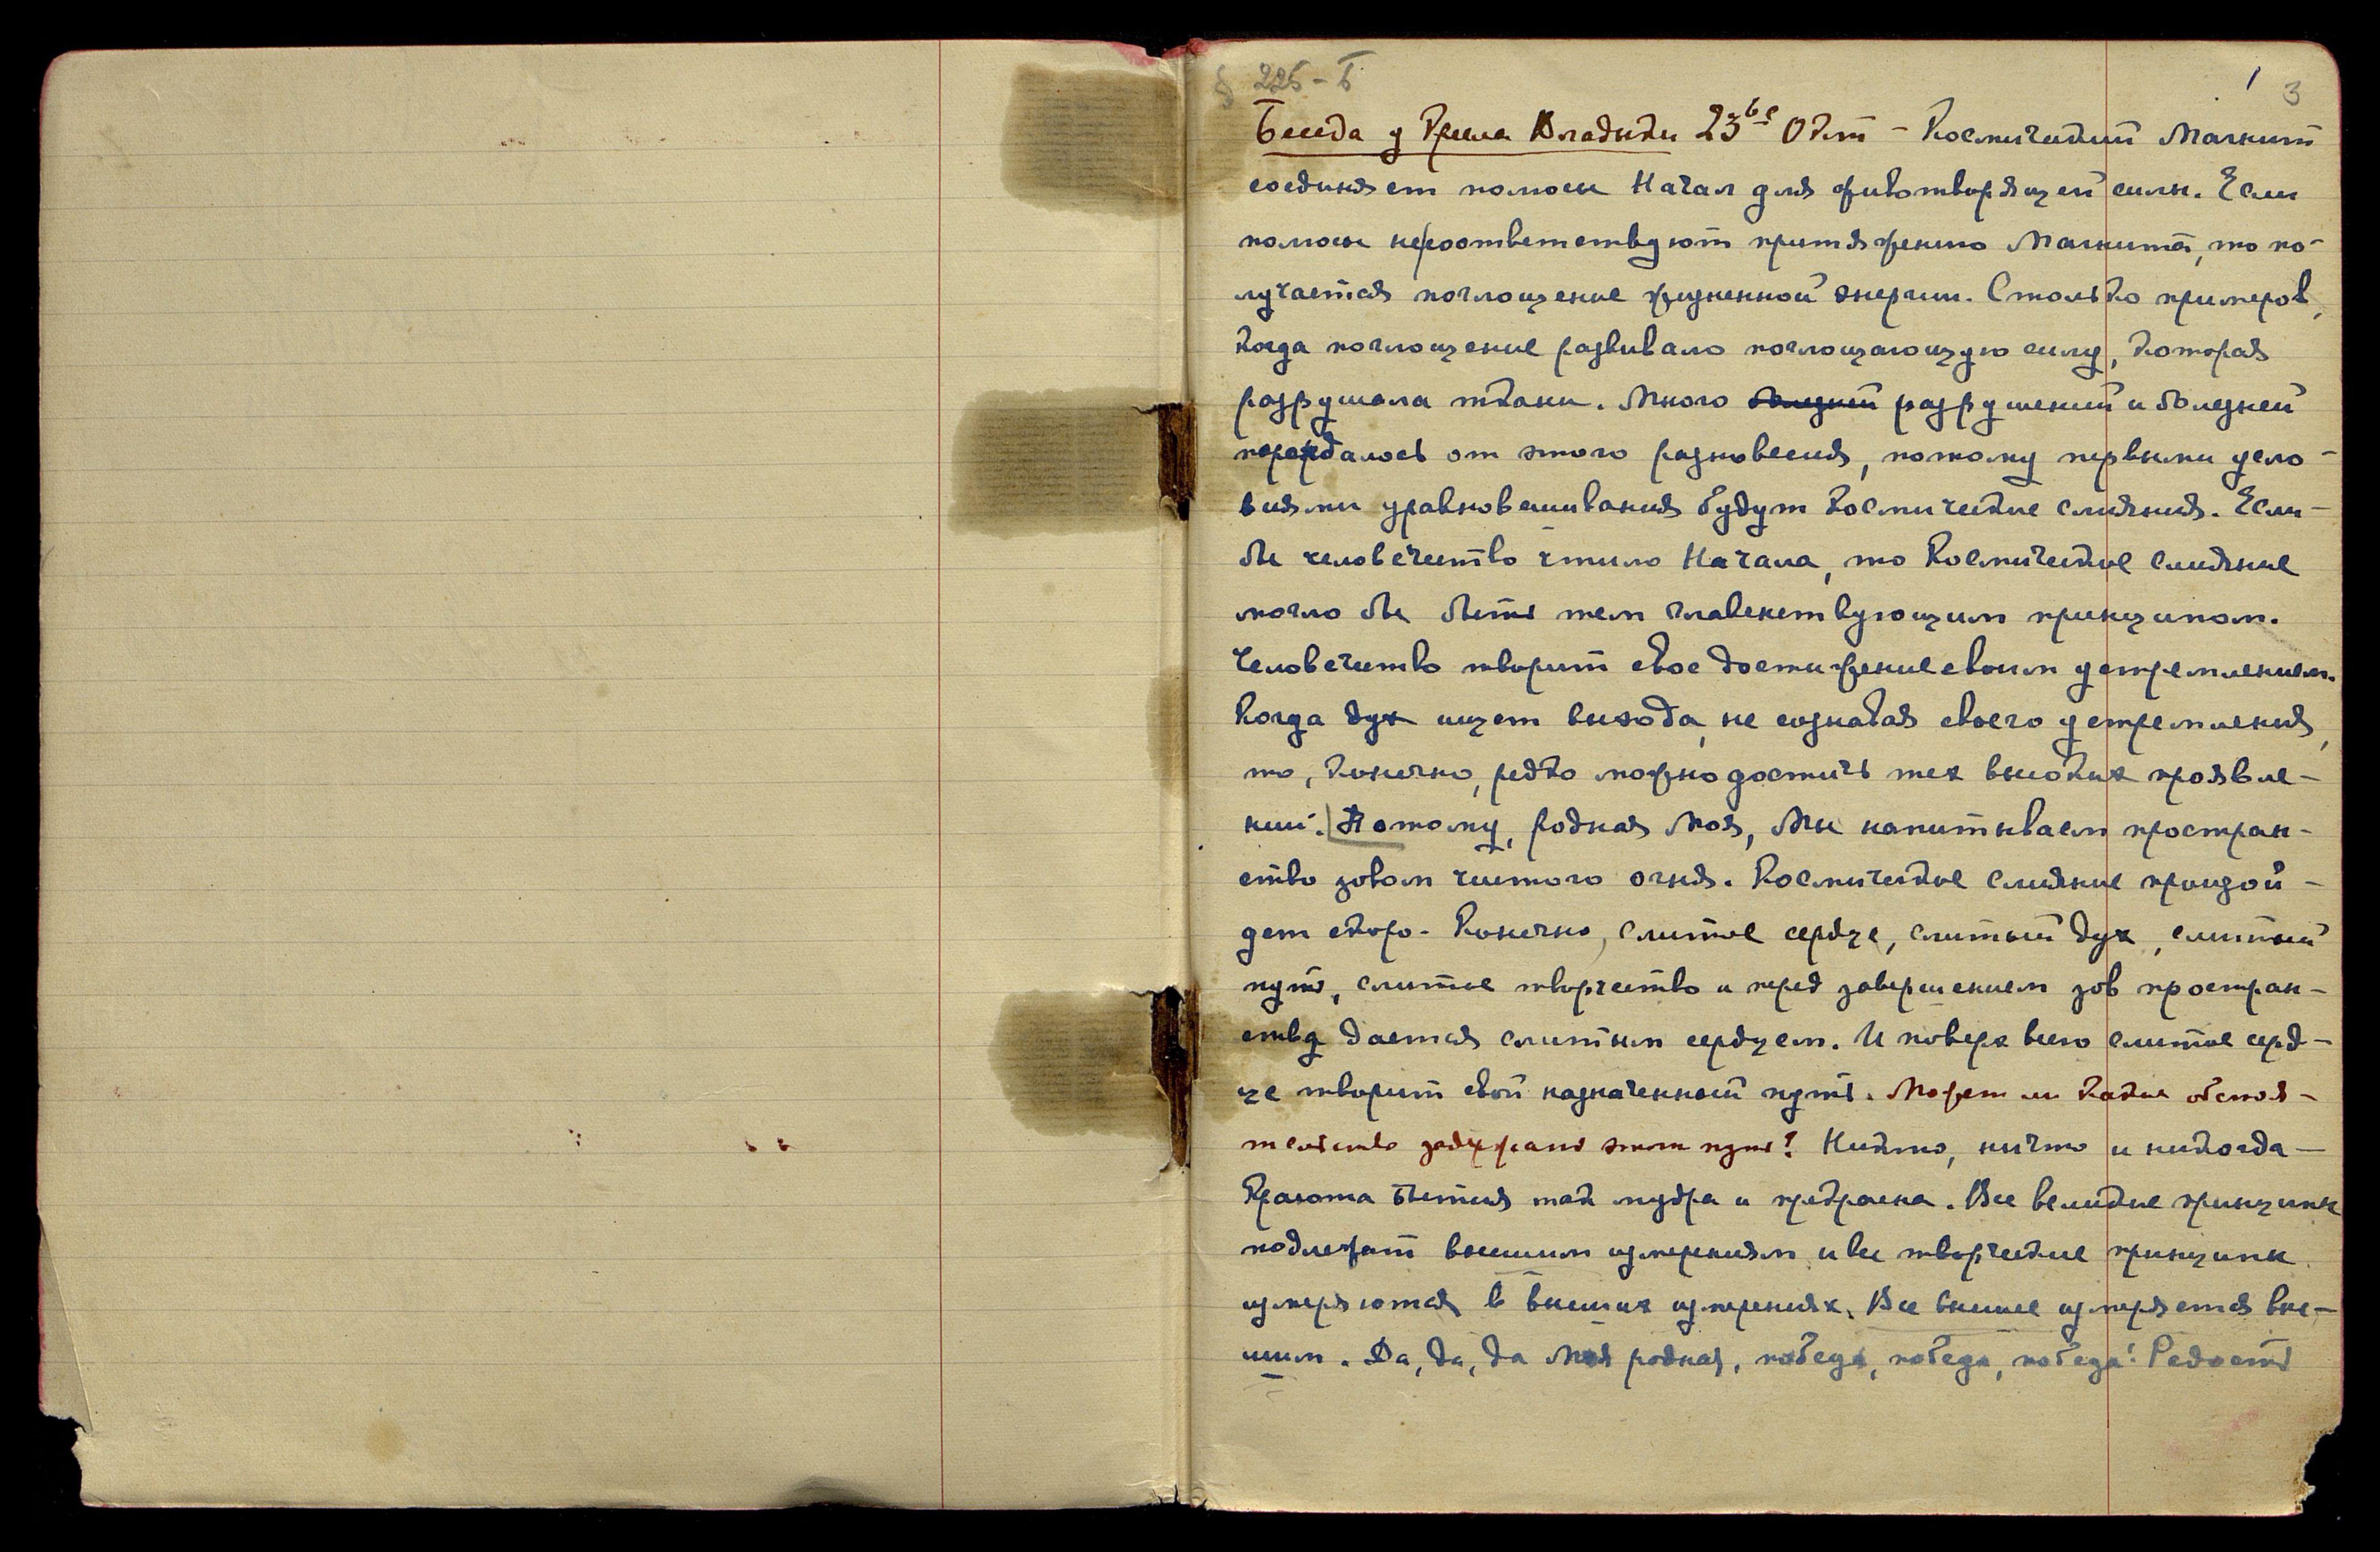 § 225 - Б
1 3
Беседа у Кресла Владыки 23ье Окт - Космический Магнит
соединяет полюсы Начал для животворящей силы. Если
полюсы не соответствуют притяжению Магнита, то по-
лучается поглощение жизненной энергии. Столько примеров,
когда поглощение развивало поглощающую силу, которая
разрушала ткани. Много болезней разрушений и болезней
порождалось от этого равновесия, потому первыми усло-
виями уравновешивания будут космические слияния. Если-
бы человечество чтило Начала, то Космическое слияние
могло бы быть тем главенствующим принципом.
Человечество творит свое достижение своим устремлением.
Когда дух ищет выхода, не сознавая своего устремления,
то, конечно, редко можно достичь тех высоких проявле-
ний. Потому, родная Моя, Мы напитываем простран-
ство зовом чистого огня. Космическое слияние произой-
дет скоро. Конечно, слитое сердце, слитый дух, слитный
путь, слитое творчество и перед завершением зов простран-
ству дается слитным сердцем. И поверх всего слитое серд-
це творит свой назначенный путь. Может ли какое обстоя-
тельство задержать этот путь? Никто, ничто и никогда —
Красота Бытия так мудра и прекрасна. Все великие принципы
подлежат высшим измерениям и все творческие принципы
измеряются в высших измерениях. Все высшее измеряется выс-
шим. Да, да, да Моя родная, победа, победа, победа! Радость